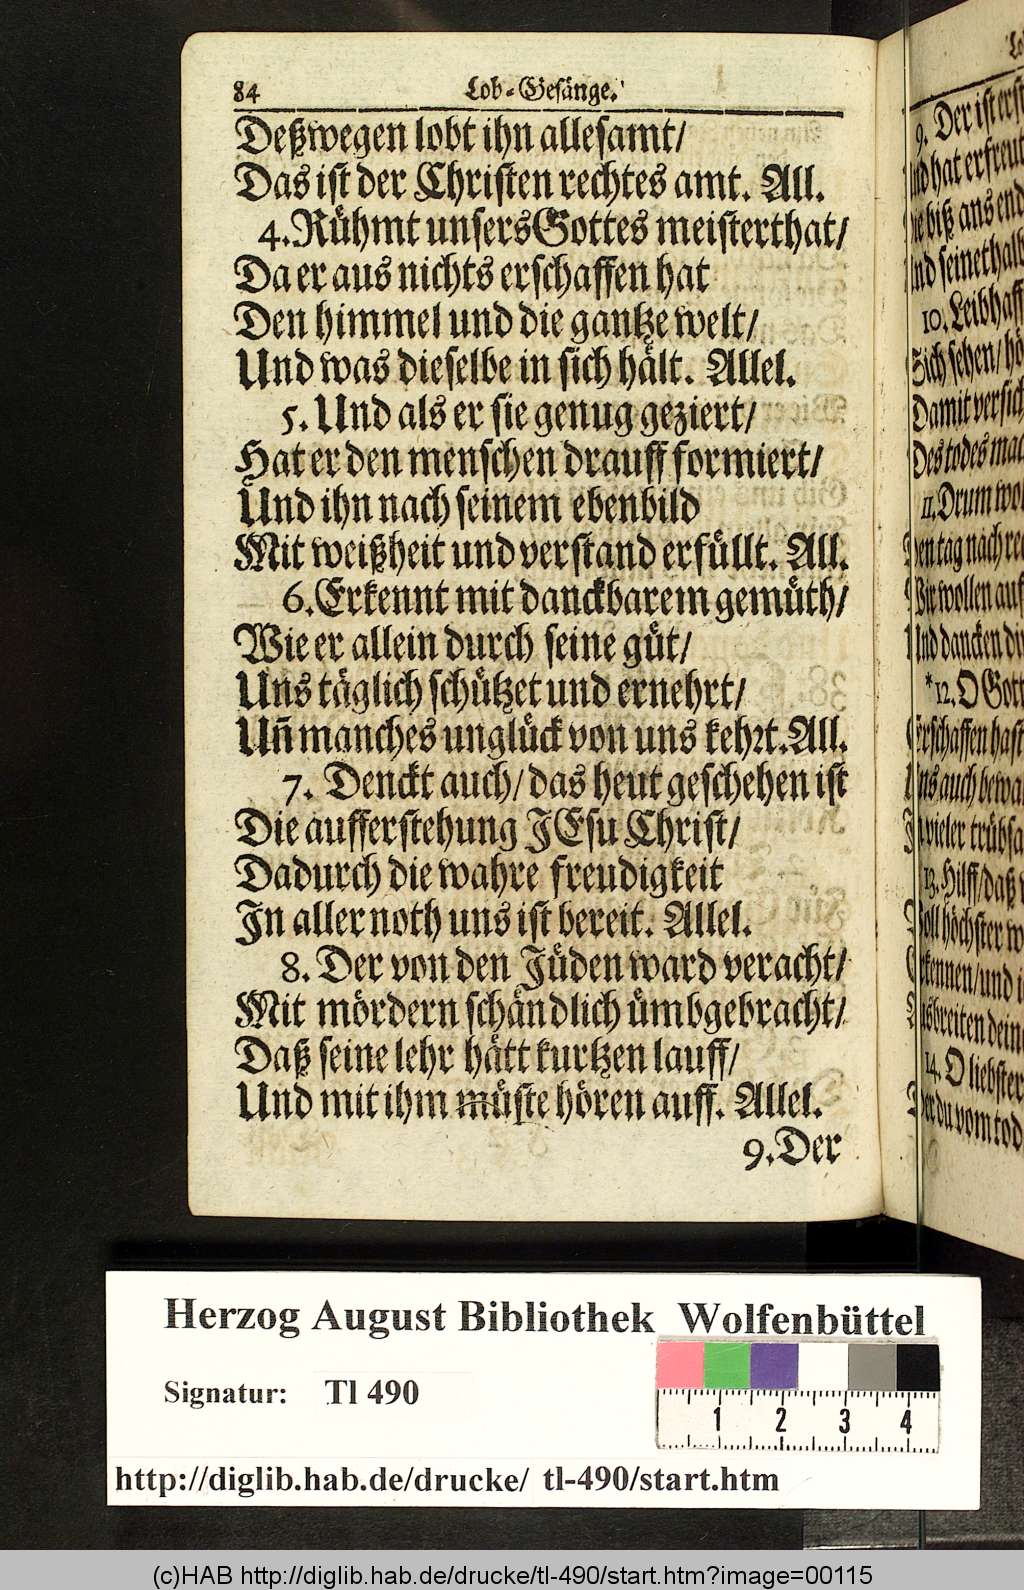 84 Lob-Gesänge.
Deßwegen lobt ihn allesamt/
Das ist der Christen rechtes amt. All.
4. Rühmt unsers Gottes meisterthat/
Da er aus nichts erschaffen hat
Den himmel und die gantze welt/
Und was dieselbe in sich hält. Allel.
5. Und als er sie genug geziert/
Hat er den menschen drauff formiert/
Und ihn nach seinem ebenbild
Mit weißheit und verstand erfüllt. All.
6. Erkennt mit danckbarem gemüth/
Wie er allein durch seine güt/
Uns täglich schützet und ernehrt/
Un̄ manches unglück von uns kehrt. All.
7. Denckt auch/ das heut geschehen ist
Die aufferstehung JEsu Christ/
Dadurch die wahre freudigkeit
In aller noth uns ist bereit. Allel.
8. Der von den Jüden ward veracht/
Mit mördern schändlich ümbgebracht/
Daß seine lehr hätt kurtzen lauff/
Und mit ihm müste hören auff. Allel.
9. Der
9. Der ist
und hat
biß ans
und
10.
Sich sehen/
Damit
Des todes
11. Drum
tag nach
Wir wollen auf
Und dancken
*12. O
Erschaffen hast
Uns auch
vieler
13. Hilff/ daß
Voll höchster
Erkennen/ und
Ausbreiten
14. O liebster
Der du vom
Herzog August Bibliothek Wolfenbüttel
Signatur: Tl 490
1 2 3 4
http://diglib.hab.de/drucke/ tl-490/start.htm
(c)HAB http://diglib.hab.de/drucke/tl-490/start.htm?image=00115